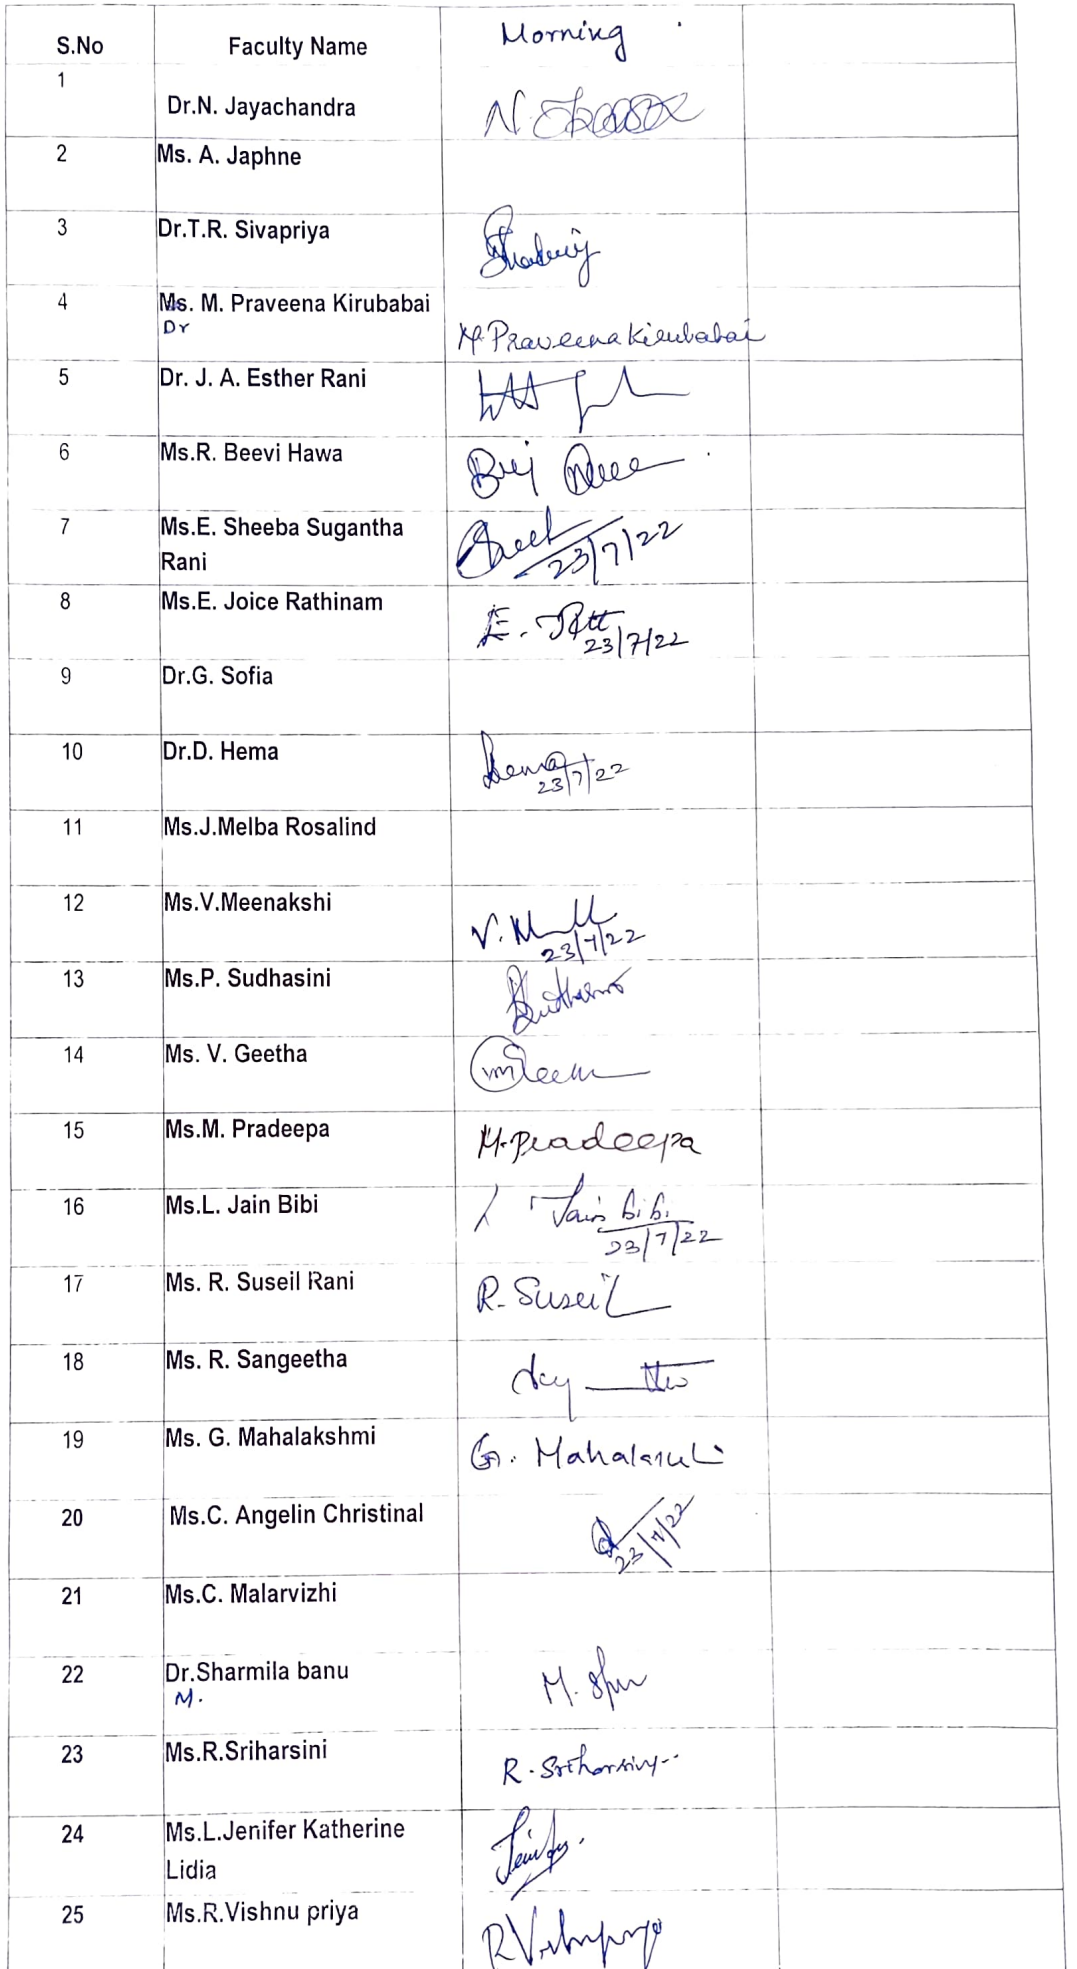 S.No Faculty Name Morning
1
Dr.N. Jayachandra N.
2 Ms. A. Japhne
3 Dr.T.R. Sivapriya
4 Ms. M. Praveena Kirubabai
Dr M. Praveena Kirubabai
5 Dr. J. A. Esther Rani
6 Ms.R. Beevi Hawa
7 Ms.E. Sheeba Sugantha
Rani 23/7/22
8 Ms.E. Joice Rathinam E.
23/7/22
9 Dr.G. Sofia
10 Dr.D. Hema Hema
23/7/22
11 Ms.J.Melba Rosalind
12 Ms.V.Meenakshi V.
23/7/22
13 Ms.P. Sudhasini
14 Ms. V. Geetha
15 Ms.M. Pradeepa M. Pradeepa
16 Ms.L. Jain Bibi L Jain Bibi
23/7/22
17 Ms. R. Suseil Rani R. Suseil
18 Ms. R. Sangeetha
19 Ms. G. Mahalakshmi G.
20 Ms.C. Angelin Christinal 23/7/22
21 Ms.C. Malarvizhi
22 Dr.Sharmila banu M.
M.
23 Ms.R.Sriharsini R. Sriharsiny
24 Ms.L.Jenifer Katherine
Lidia
25 Ms.R.Vishnu priya